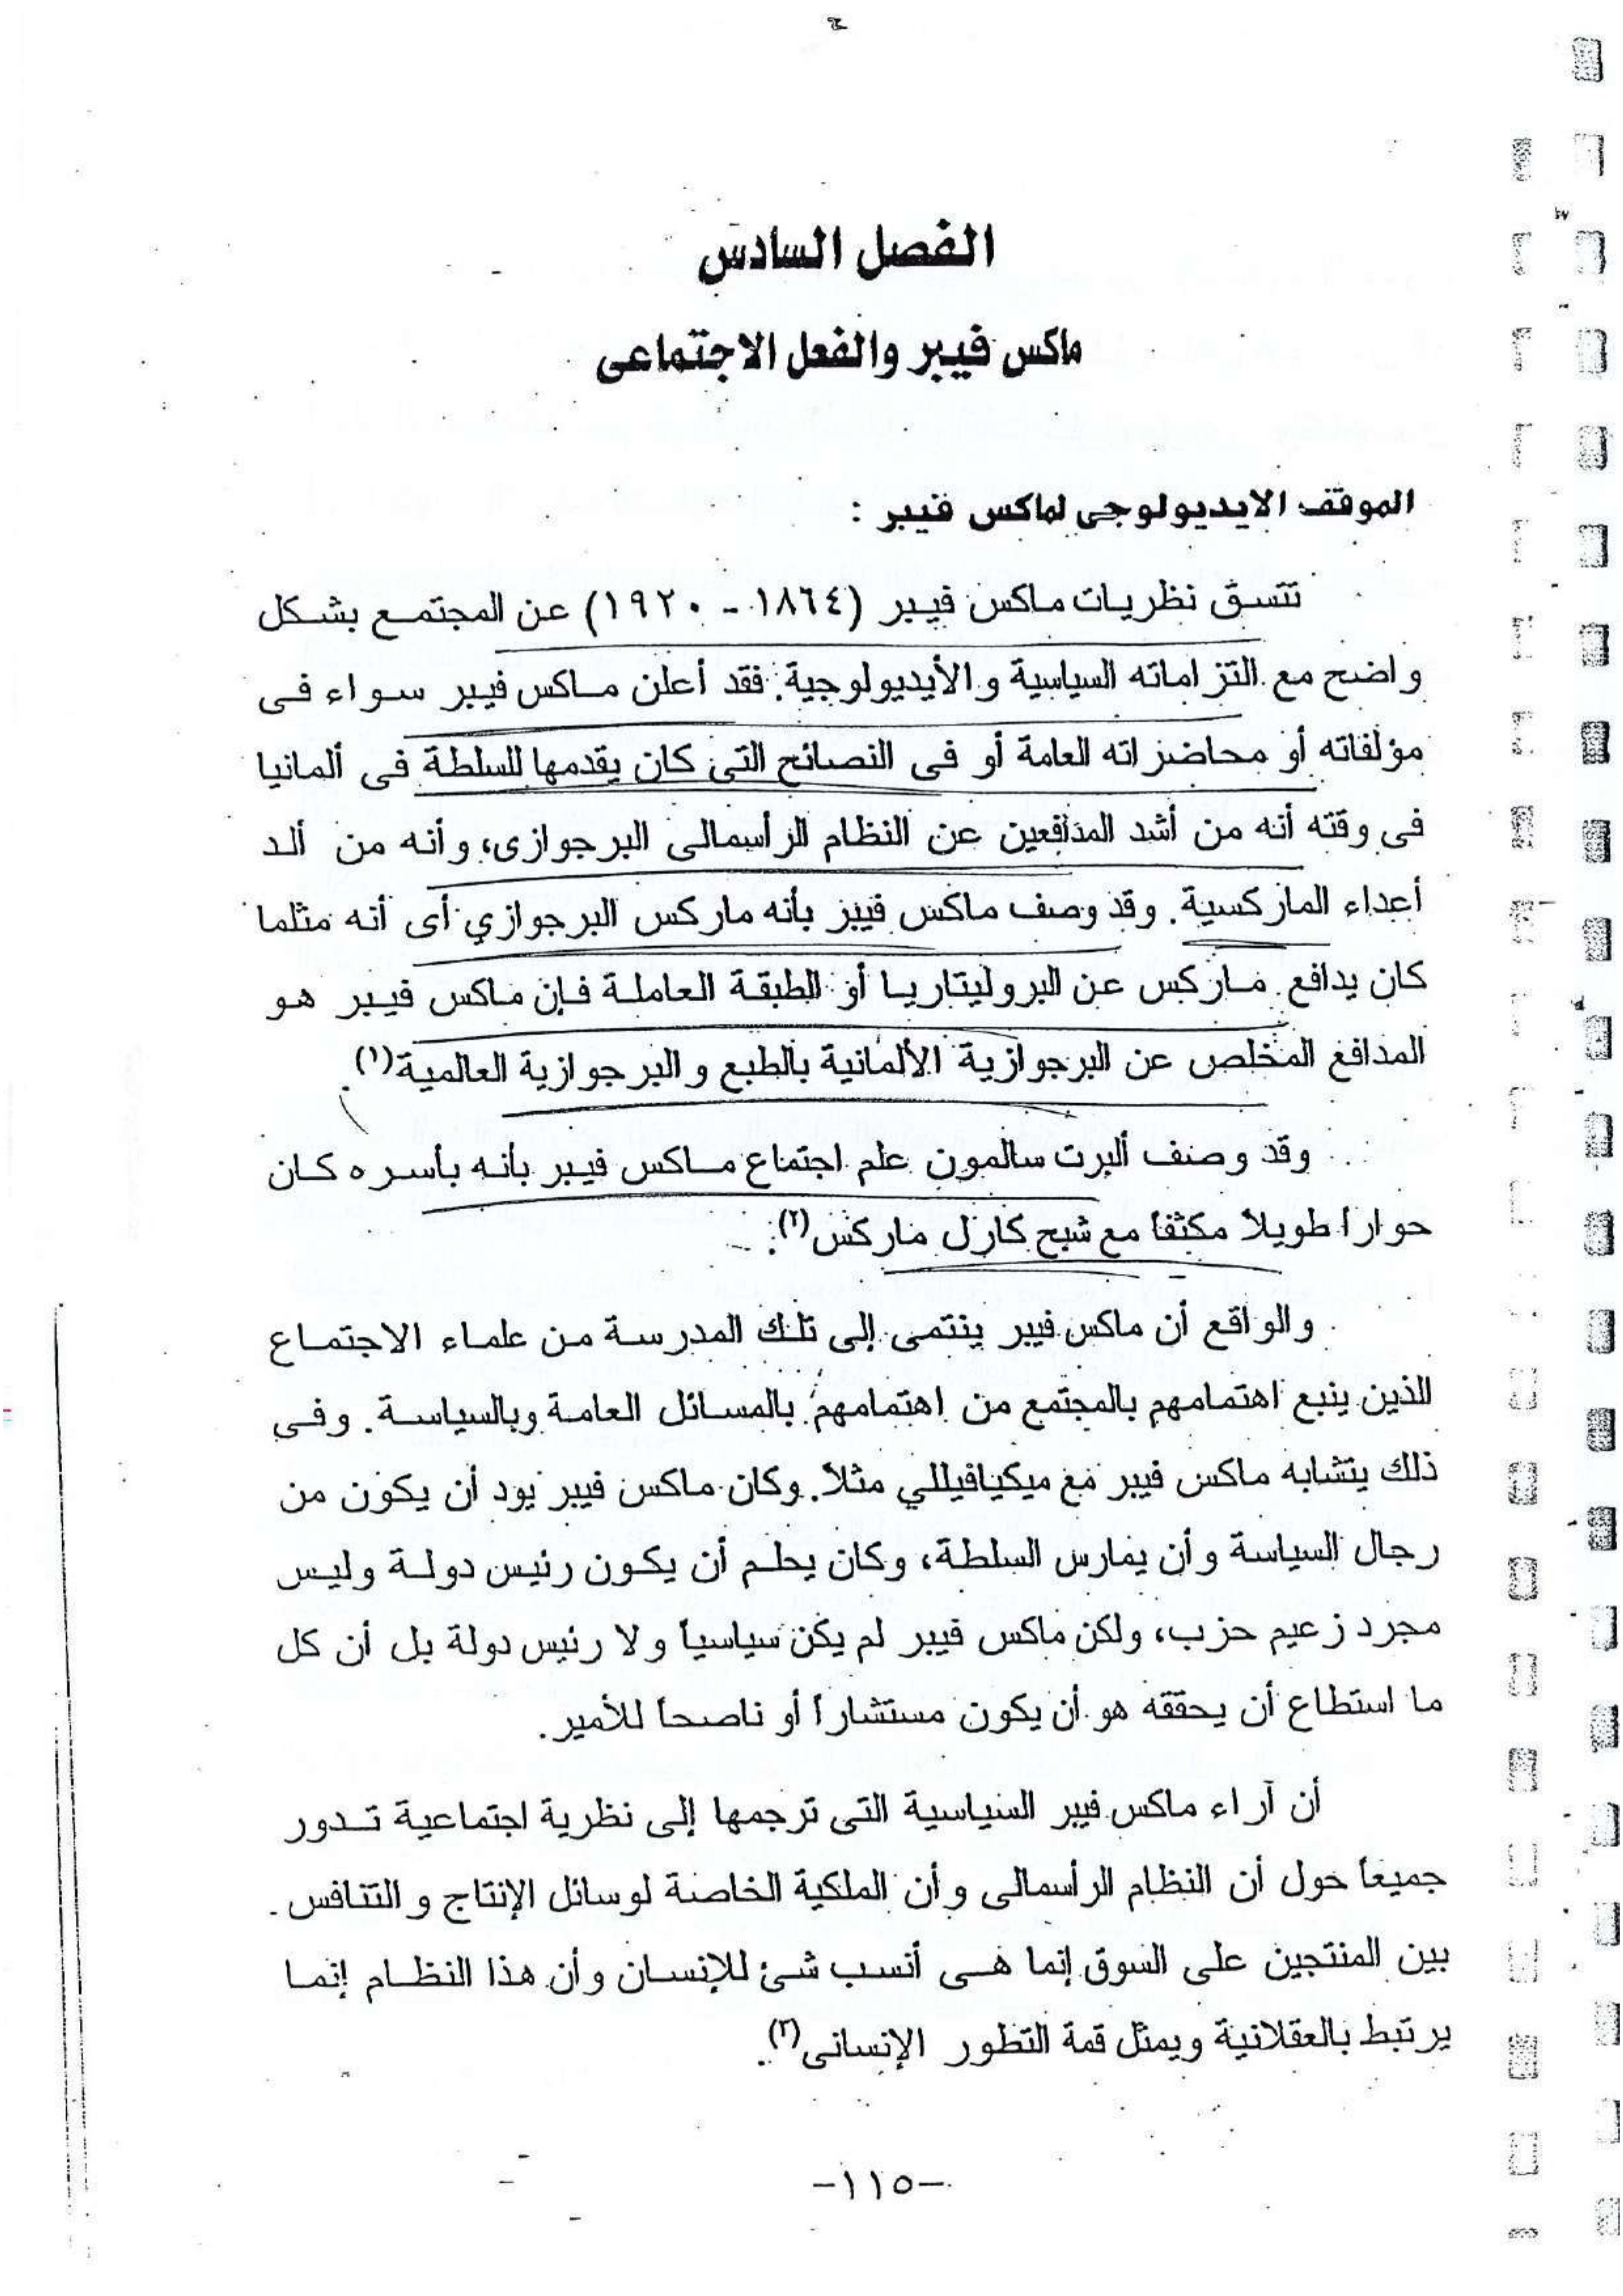 الفصل السادس
ماكس فيبر والفعل الاجتماعى
الموقف الايديولوجى لماكس فيبر :
تتسق نظريات ماكس فيبر (١٨٦٤ - ١٩٢٠) عن المجتمع بشكل
واضح مع التزاماته السياسية والأيديولوجية. فقد أعلن ماكس فيبر سواء فى
مؤلفاته أو محاضراته العامة أو فى النصائح التى كان يقدمها للسلطة فى ألمانيا
فى وقته أنه من أشد المدافعين عن النظام الرأسمالى البرجوازى، وأنه من ألد
أعداء الماركسية. وقد وصف ماكس فيبر بأنه ماركس البرجوازي أى أنه مثلما
كان يدافع ماركس عن البروليتاريا أو الطبقة العاملة فإن ماكس فيبر هو
المدافع المخلص عن البرجوازية الألمانية بالطبع والبرجوازية العالمية(١).
وقد وصف ألبرت سالمون علم اجتماع ماكس فيبر بأنه بأسره كان
حواراً طويلاً مكثفاً مع شبح كارل ماركس(٢).
والواقع أن ماكس فيبر ينتمى إلى تلك المدرسة من علماء الاجتماع
الذين ينبع اهتمامهم بالمجتمع من اهتمامهم بالمسائل العامة وبالسياسة. وفى
ذلك يتشابه ماكس فيبر مع ميكيافيللي مثلاً. وكان ماكس فيبر يود أن يكون من
رجال السياسة وأن يمارس السلطة، وكان يحلم أن يكون رئيس دولة وليس
مجرد زعيم حزب، ولكن ماكس فيبر لم يكن سياسياً ولا رئيس دولة بل أن كل
ما استطاع أن يحققه هو أن يكون مستشاراً أو ناصحاً للأمير.
أن آراء ماكس فيبر السياسية التى ترجمها إلى نظرية اجتماعية تدور
جميعاً حول أن النظام الرأسمالى وأن الملكية الخاصة لوسائل الإنتاج والتنافس
بين المنتجين على السوق إنما هى أنسب شئ للإنسان وأن هذا النظام إنما
يرتبط بالعقلانية ويمثل قمة التطور الإنسانى(٣).
-١١٥-